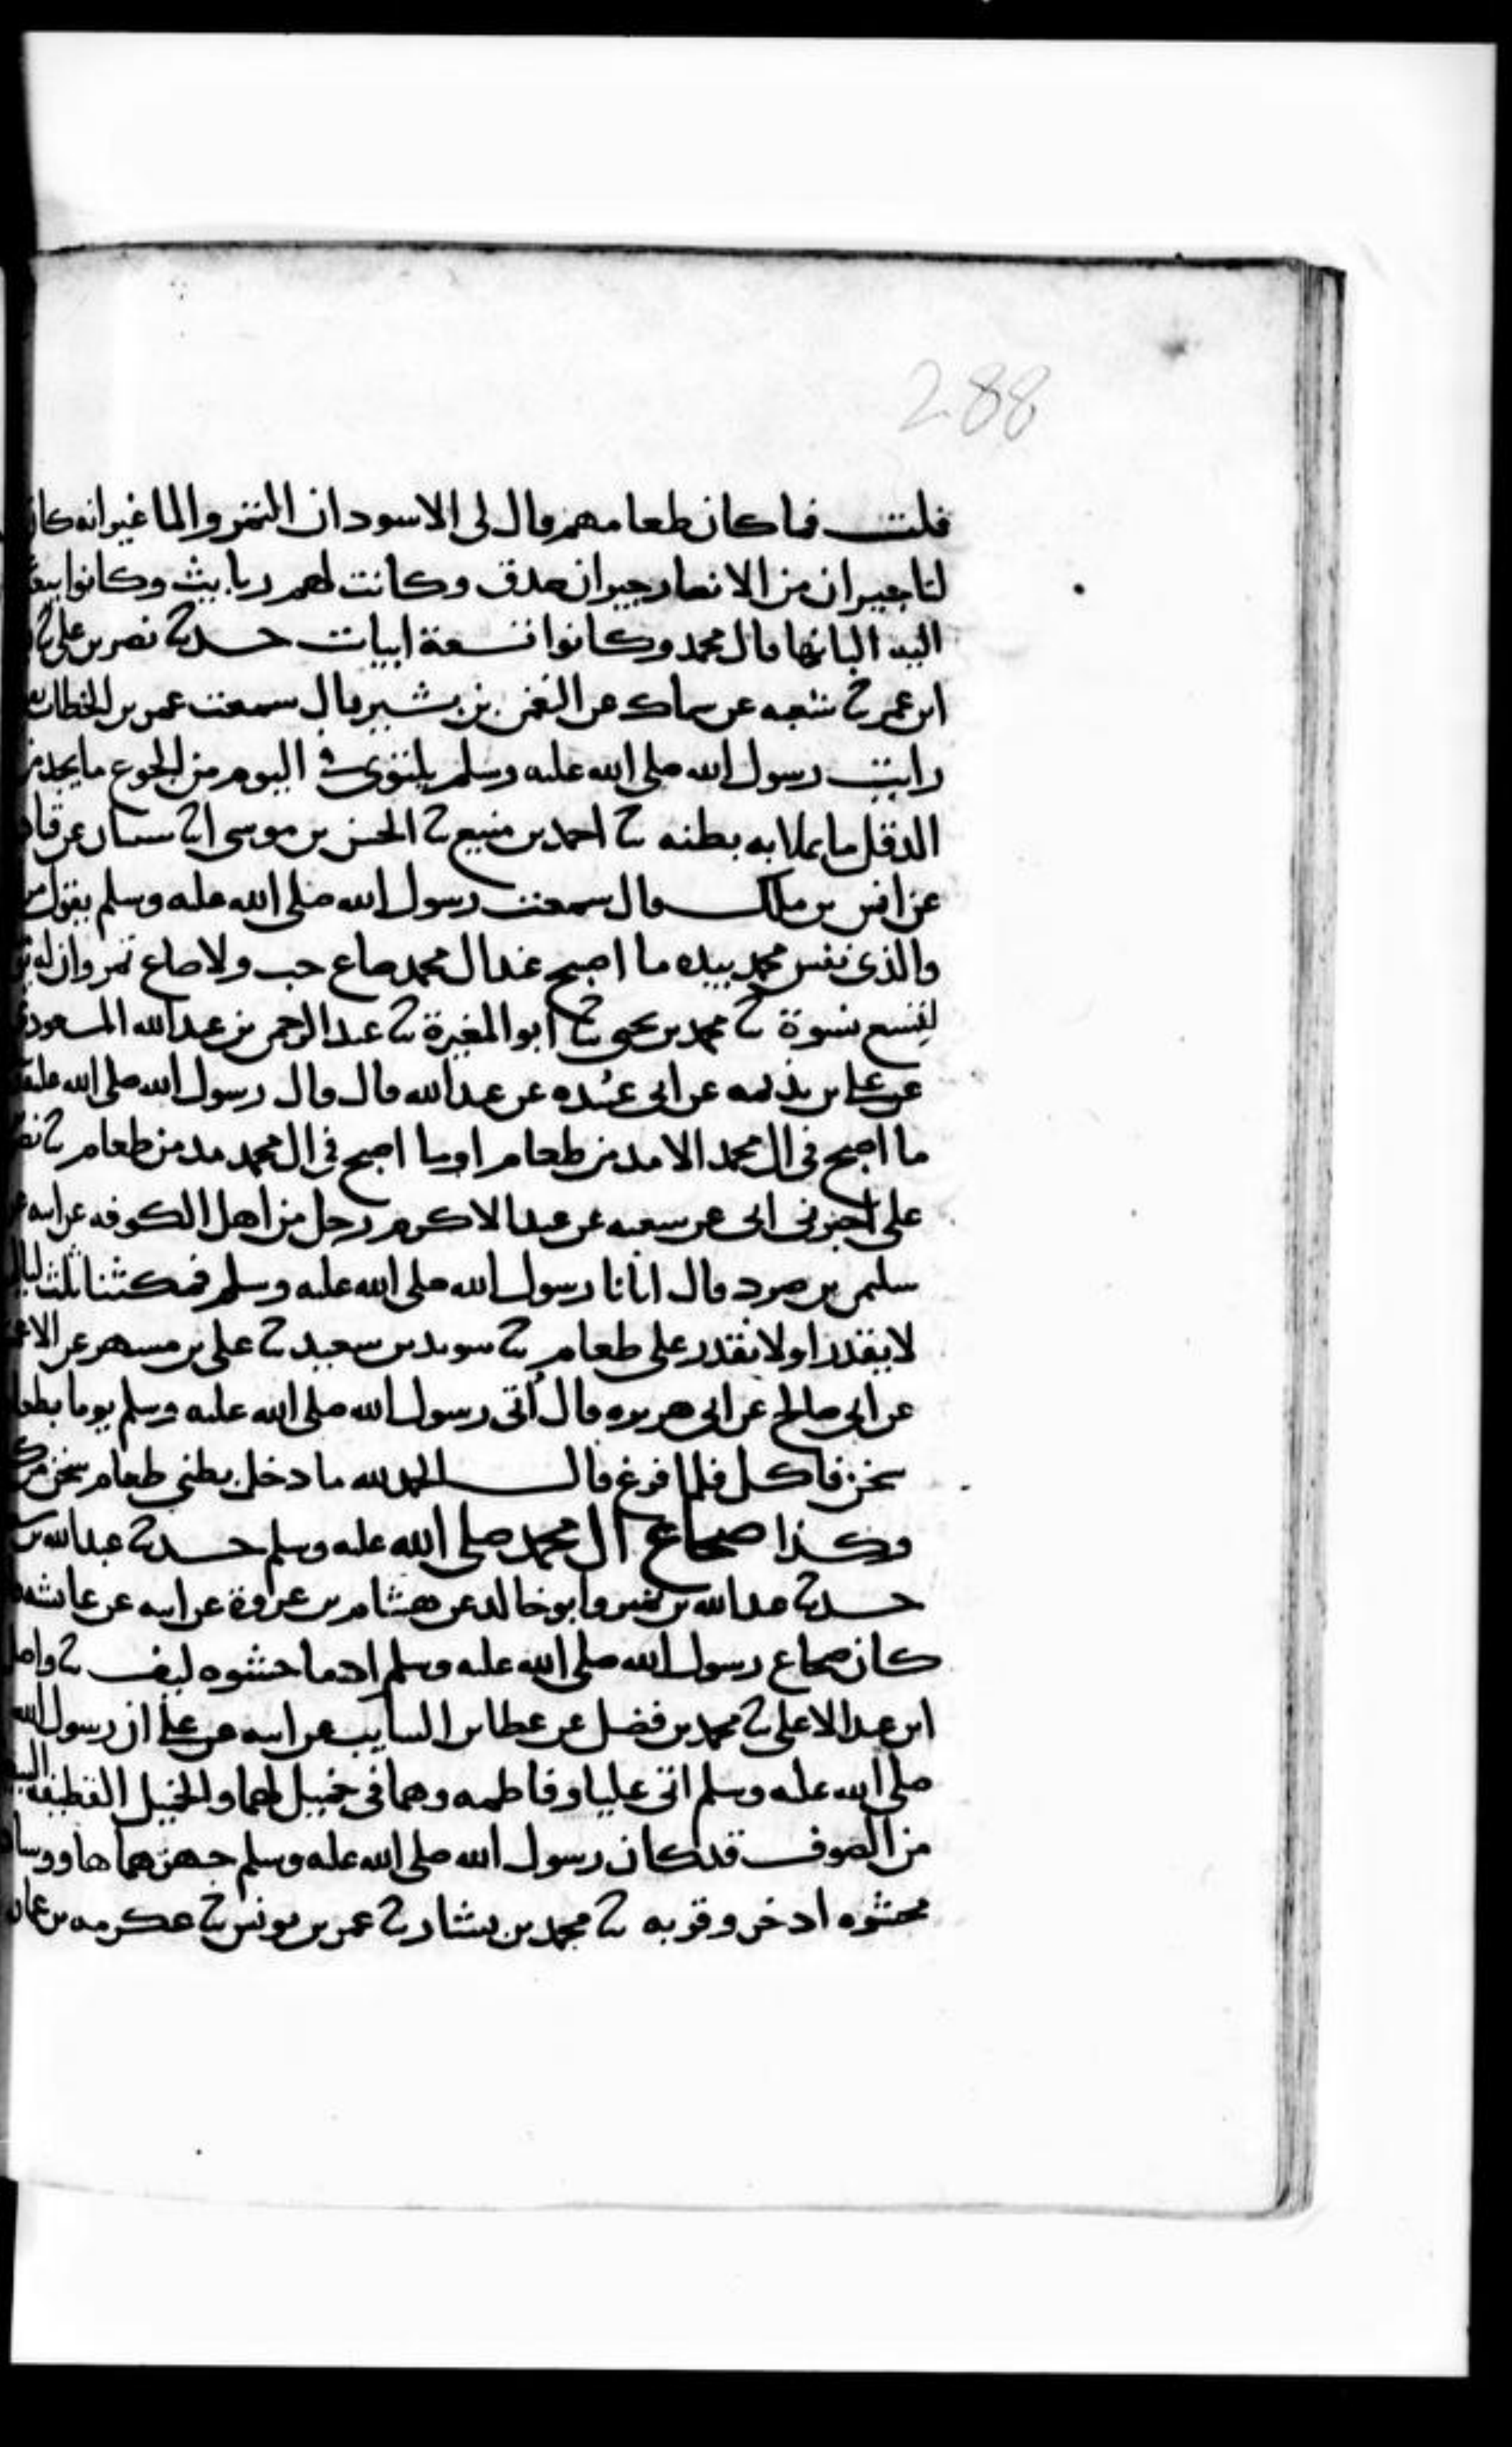 288
قلت فما كان طعامهم قال لى الاسودان التمر والما غير انه كان
لنا جيران من الانصار جيران صدق وكانت لهم ربايب وكانوا
اليه البانها قال محمد وكانوا تسعة ابيات حدثنا نصر بن على ثنا
ابن عمر ثنا شعبه عن سماك عن النعمن بن بشير قال سمعت عمر بن الخطاب
رايت رسول الله صلى الله عليه وسلم يلتوى في اليوم من الجوع ما يجد من
الدقل ما يملا به بطنه ثنا احمد بن منيع ثنا الحسن بن موسى انا عن
عن انس بن ملك قال سمعت رسول الله صلى الله عليه وسلم يقول
والذى نفس محمد بيده ما اصبح عند ال محمد صاع حب ولا صاع تمر وان له
لتسع نسوة ثنا محمد بن يحيى ثنا ابو المغيرة ثنا عبد الرحمن بن عبد الله المسعودى
عن على بن بذيمه عن ابى عبيده عن عبد الله قال قال رسول الله صلى الله عليه
ما اصبح فى ال محمد الا مد من طعام او ما اصبح فى ال محمد مد من طعام ثنا نصر
على اخبرنى ابى عن شعبه عن عبد الاكرم رجل من اهل الكوفه عن ابيه عن
سليمن بن صرد قال اتانا رسول الله صلى الله عليه وسلم فمكثنا ثلث ليال
لا يقدر او لا نقدر على طعام ثنا سويد بن سعيد ثنا على بن مسهر عن
عن ابى صالح عن ابى هريره قال أتى رسول الله صلى الله عليه وسلم يوما بطعام
سخن فاكل فلما فرغ قال الحمد لله ما دخل بطنى طعام سخن
وكذا ضجاع ال محمد صلى الله عليه وسلم حدثنا عبد الله بن
حدثنا عبد الله بن نمير وابو خالد عن هشام بن عروة عن ابيه عن عايشه
كان ضجاع رسول الله صلى الله عليه وسلم ادما حشوه ليف ثنا واصل
ابن عبد الاعلى ثنا محمد بن فضل عن عطا بن السايب عن ابيه عن على ان رسول الله
صلى الله عليه وسلم اتى عليا وفاطمه وهما فى خميل لهما والخميل القطيفه
من الصوف قد كان رسول الله صلى الله عليه وسلم جهزهما بها
محشوه اذخر وقربه ثنا محمد بن بشار ثنا عمر بن يونس ثنا عكرمه بن عمار